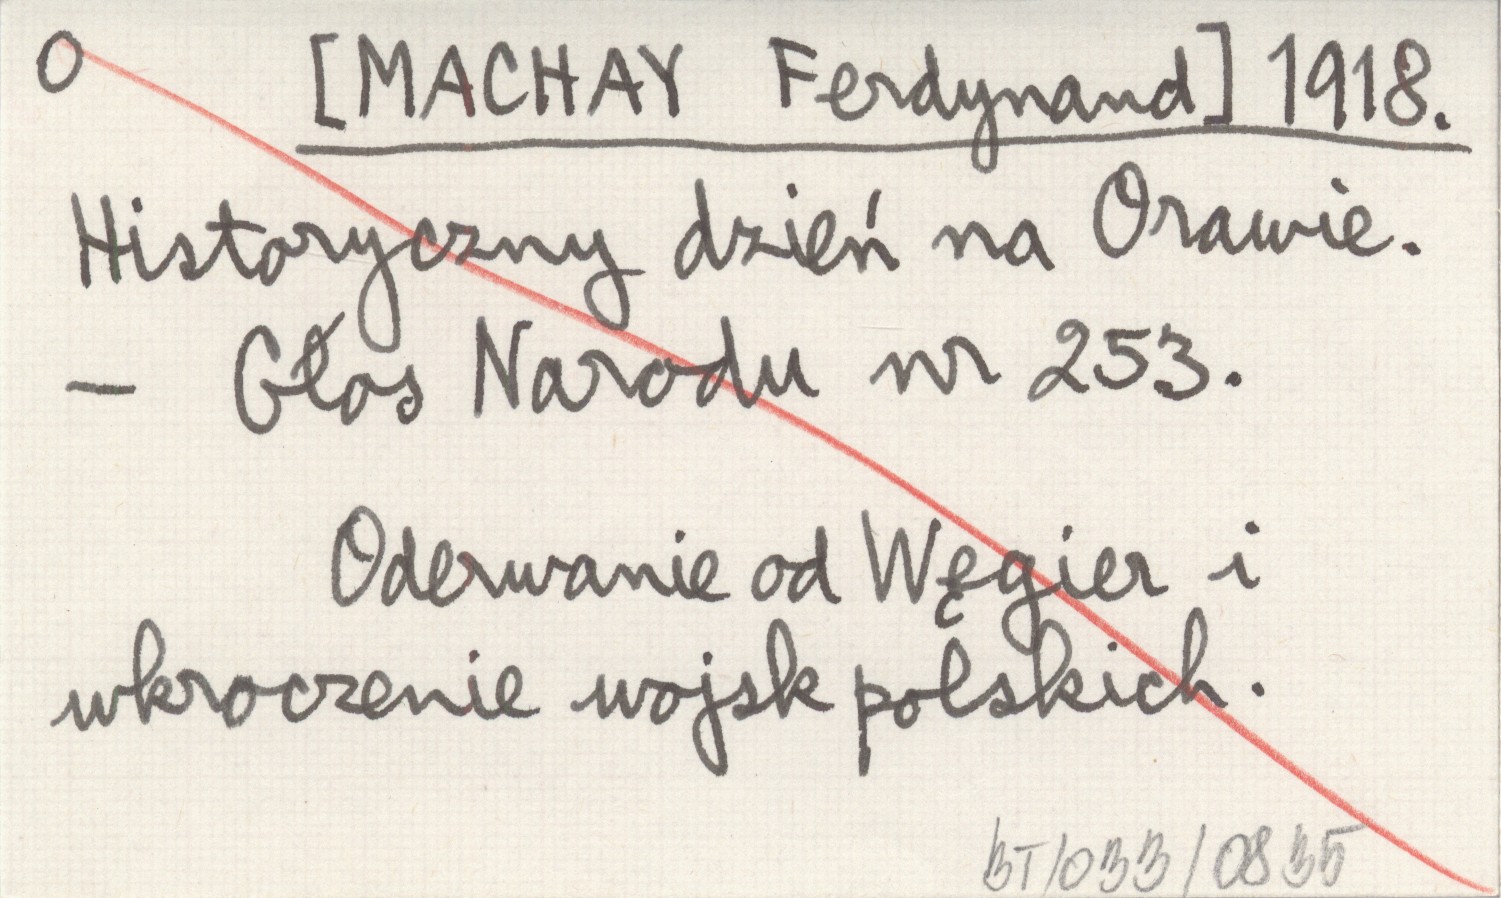 O [MACHAY Ferdynand] 1918.
Historyczny dzień na Orawie.
— Głos Narodu nr 253.
Oderwanie od Węgier i
wkroczenie wojsk polskich.
BT/033/0835